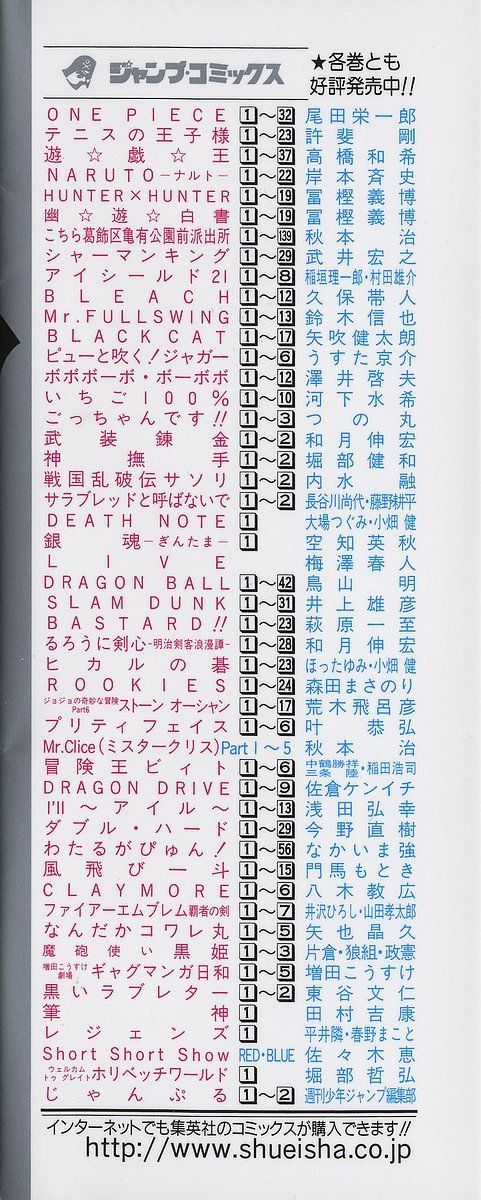 ジャンプ・コミックス
★各巻とも
好評発売中!!
ONE PIECE 1～32 尾田栄一郎
テニスの王子様 1～23 許斐 剛
遊☆戯☆王 1～37 高橋和希
NARUTO―ナルト― 1～22 岸本斉史
HUNTER×HUNTER 1～19 冨樫義博
幽☆遊☆白書 1～19 冨樫義博
こちら葛飾区亀有公園前派出所 1～139 秋本 治
シャーマンキング 1～29 武井宏之
アイシールド21 1～8 稲垣理一郎・村田雄介
BLEACH 1～12 久保帯人
Mr.FULLSWING 1～13 鈴木信也
BLACK CAT 1～17 矢吹健太朗
ピューと吹く!ジャガー 1～6 うすた京介
ボボボーボ・ボーボボ 1～12 澤井啓夫
いちご100% 1～10 河下水希
ごっちゃんです!! 1～3 つの丸
武装錬金 1～2 和月伸宏
神撫手 1～2 堀部健和
戦国乱破伝サソリ 1～2 内水 融
サラブレッドと呼ばないで 1～2 長谷川尚代・藤野耕平
DEATH NOTE 1 大場つぐみ・小畑 健
銀魂―ぎんたま― 1 空知英秋
LIVE 梅澤春人
DRAGON BALL 1～42 鳥山 明
SLAM DUNK 1～31 井上雄彦
BASTARD!! 1～23 萩原一至
るろうに剣心-明治剣客浪漫譚- 1～28 和月伸宏
ヒカルの碁 1～23 ほったゆみ・小畑 健
ROOKIES 1～24 森田まさのり
ジョジョの奇妙な冒険 Part6 ストーン オーシャン 1～17 荒木飛呂彦
プリティフェイス 1～6 叶 恭弘
Mr.Clice(ミスタークリス) Part 1～5 秋本 治
冒険王ビィト 1～6 三条 陸・稲田浩司
DRAGON DRIVE 1～9 佐倉ケンイチ
I'll～アイル～ 1～13 浅田弘幸
ダブル・ハード 1～29 今野直樹
わたるがぴゅん! 1～56 なかいま強
風飛び一斗 1～15 門馬もとき
CLAYMORE 1～6 八木教広
ファイアーエムブレム覇者の剣 1～7 井沢ひろし・山田孝太郎
なんだかコワレ丸 1～5 矢也晶久
魔砲使い黒姫 1～3 片倉・狼組・政憲
増田こうすけ劇場 ギャグマンガ日和 1～5 増田こうすけ
黒いラブレター 1～2 東谷文仁
筆神 1 田村吉康
レジェンズ 1 平井隣・春野まこと
Short Short Show RED・BLUE 佐々木恵
ウェルカム トゥ グレイト ホリベッチワールド 1 堀部哲弘
じゃんぷる 1～2 週刊少年ジャンプ編集部
インターネットでも集英社のコミックスが購入できます!!
http://www.shueisha.co.jp